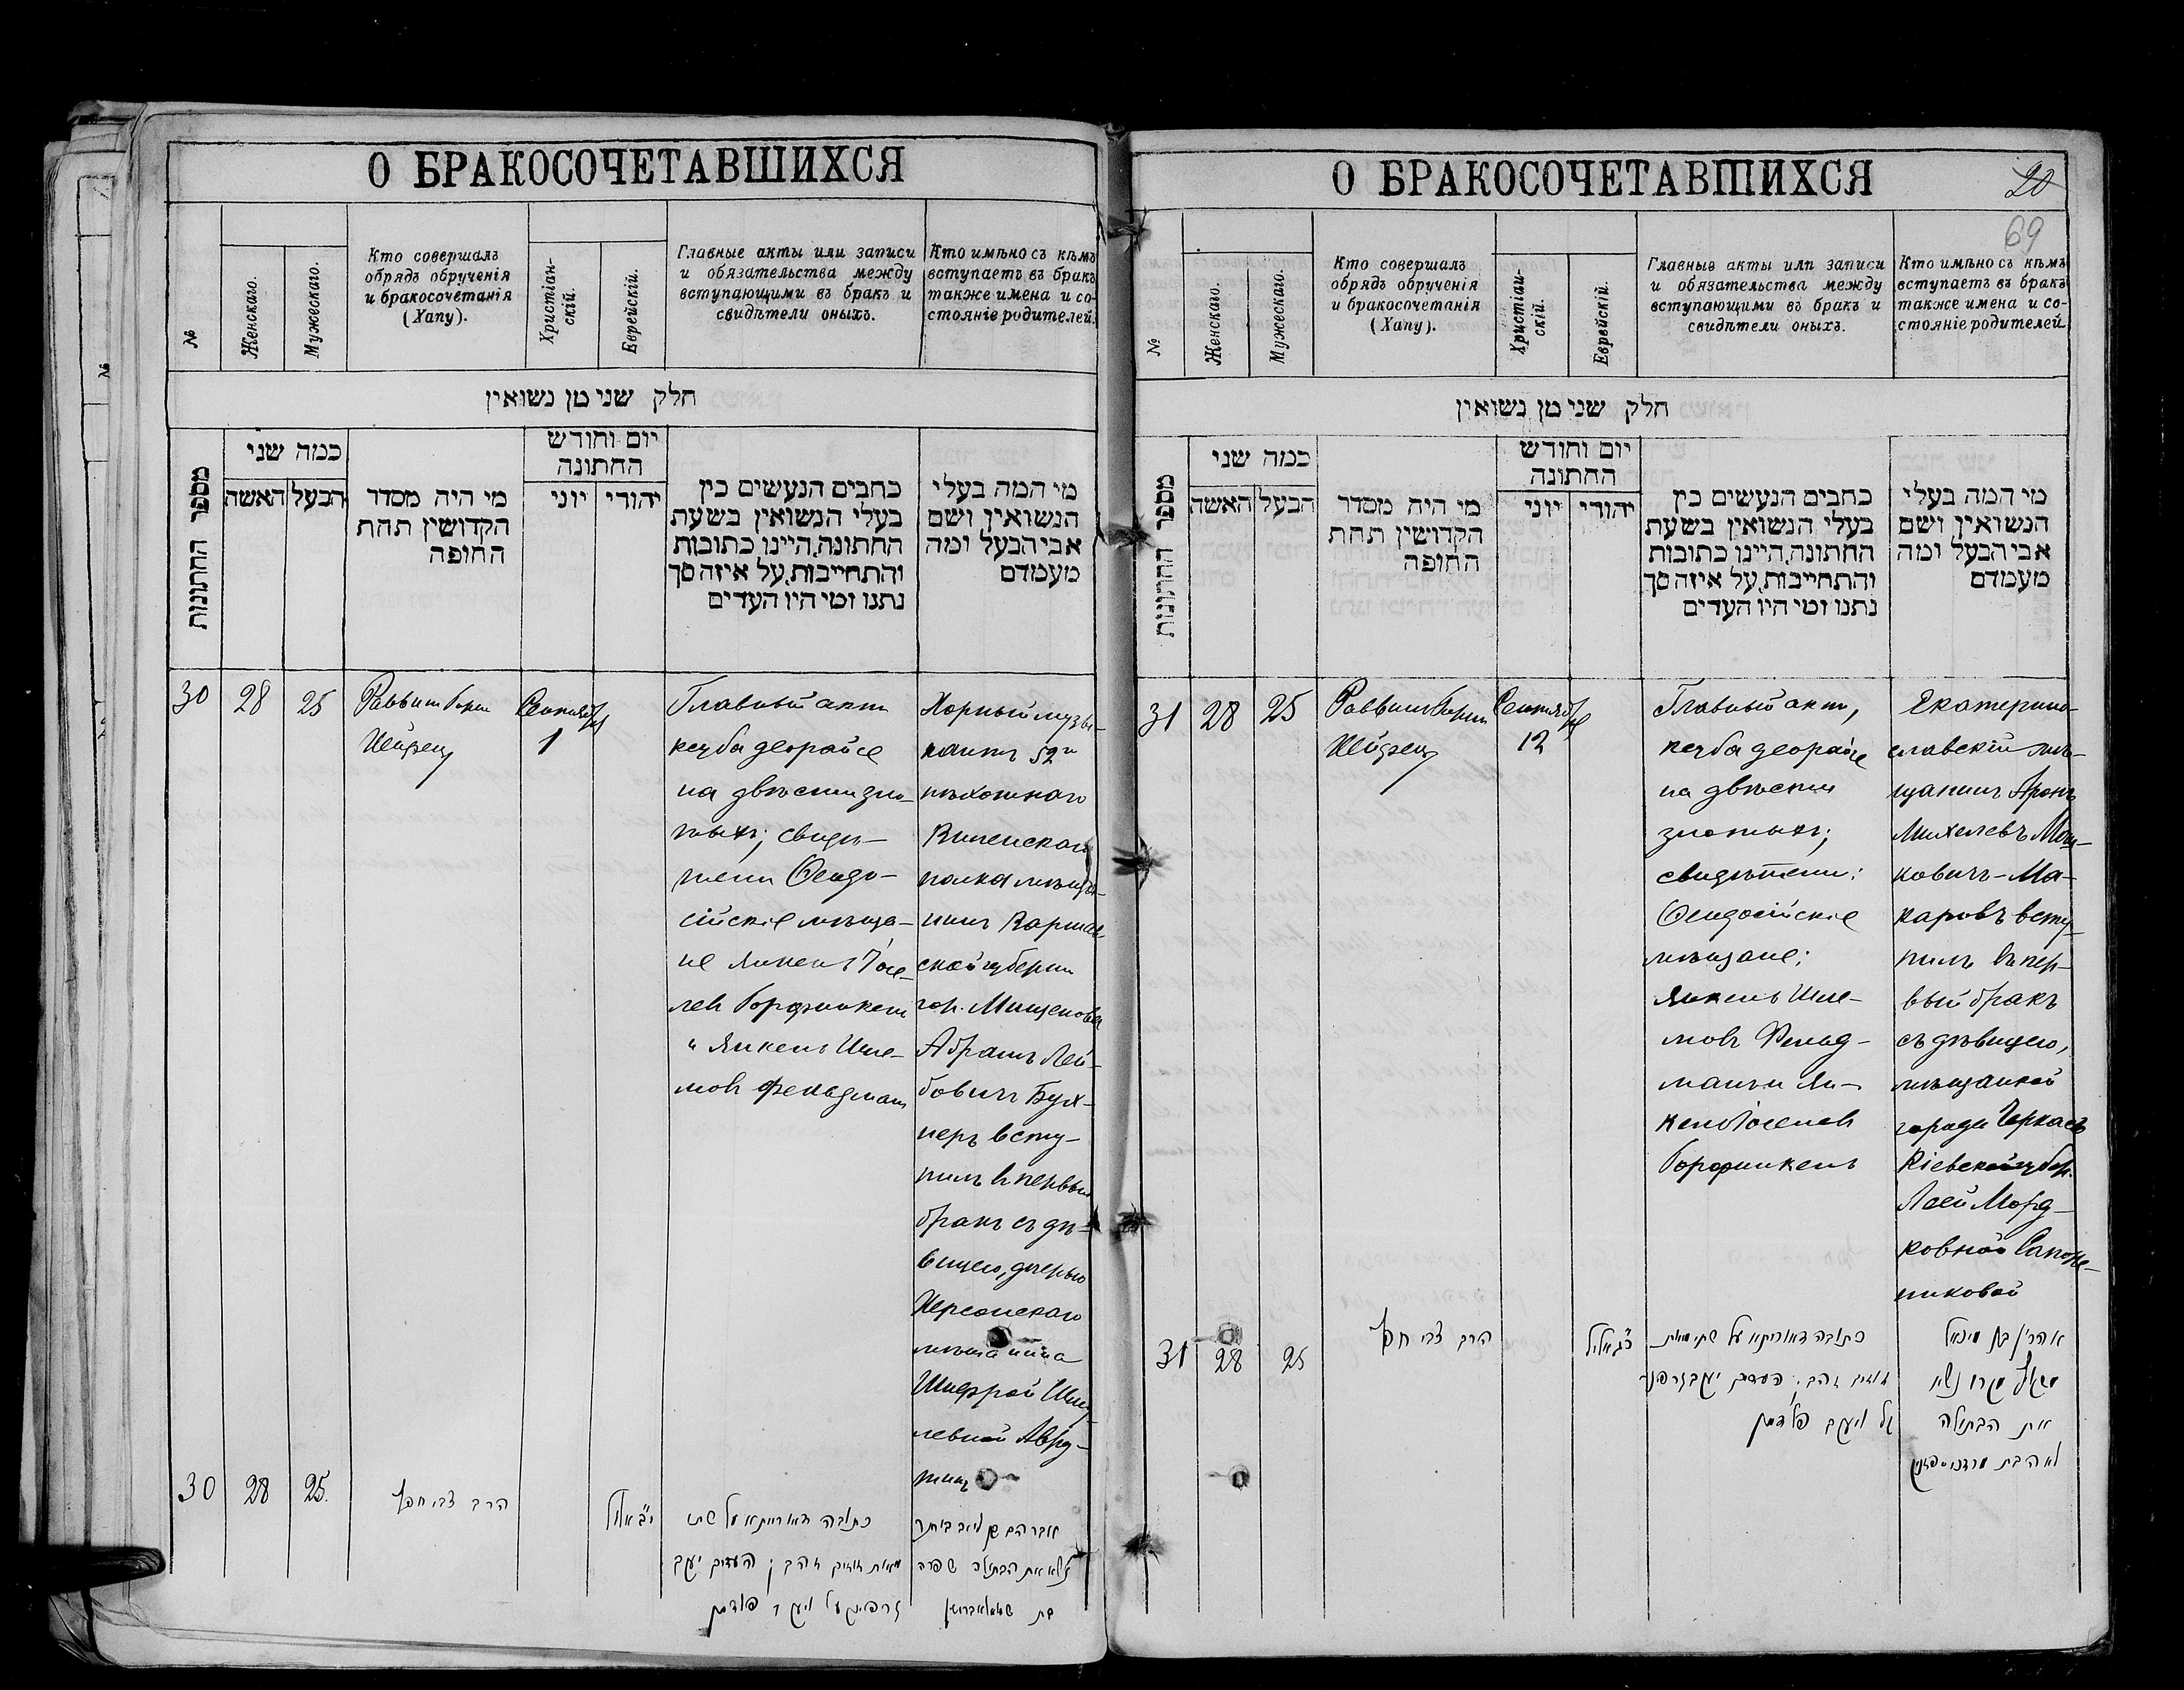 О БРАКОСОЧЕТАВШИХСЯ
№
Женскаго.
Мужескаго.
Кто совершалъ
обрядъ обрученія
и бракосочетанія
(Хапу).
Христіан-
скій.
Еврейскій.
Главные акты или записи
и обязательства между
вступающими въ бракъ и
свидѣтели оныхъ.
Кто имѣно съ кѣмъ
вступаетъ въ бракъ
также имена и со-
стояніе родителей.
חלק שני מן נשואין
מספר החתונות
כמה שני
האשה
הבעל
מי היה מסדר
הקדושין תחת
החופה
יום וחודש
החתונה
יוני
יהודי
כתבים הנעשים בין
בעלי הנשואין בשעת
החתונה,היינו כתובות
והתחייבות,על איזה סך
נתנו ומי היו העדים
מי המה בעלי
הנשואין ושם
אבי הבעל ומה
מעמדם
30
28
25
Раввинъ
Хейфец
Сентября
1
Главный актъ
кесуба деорайсе
на двѣсти зло-
тыхъ; свидѣ-
тели Ѳеодо-
сійскіе мѣща-
не Янкель Іосе-
левъ Горфинкель
и Янкель Шле-
мовъ Фельдманъ
Хорный музы-
кантъ 52го
пѣхотнаго
Виленскаго
полка мѣща-
нинъ Варшав-
ской губерніи
гор. Мщенова
Абрамъ Лей-
бовичъ Бух-
неръ всту-
пилъ въ первый
бракъ съ дѣ-
вицею, дочерью
Херсонскаго
мѣщанина
Шифрой Шму-
левной Авру-
тинъ
30
28
25.
הרב צבי חפץ
י״ב אלול
כתובה דאורייתא על שתי
מאות זהובים זהב ; העדים יעקב
גורפינקעל ויעקב פעלדמן
אברהם בן לייב בוחנר
נשא את הבתולה שפרה
בת שמואל אברוטין
О БРАКОСОЧЕТАВШИХСЯ
20
69
№
Женскаго.
Мужескаго.
Кто совершалъ
обрядъ обрученія
и бракосочетанія
(Хапу).
Христіан-
скій.
Еврейскій.
Главные акты или записи
и обязательства между
вступающими въ бракъ и
свидѣтели оныхъ.
Кто имѣно съ кѣмъ
вступаетъ въ бракъ
также имена и со-
стояніе родителей
חלק שני מן נשואין
מספר החתונות
כמה שני
האשה
הבעל
מי היה מסדר
הקדושין תחת
החופה
יום וחודש
החתונה
יוני
יהודי
כתבים הנעשים בין
בעלי הנשואין בשעת
החתונה,היינו כתובות
והתחייבות,על איזה סך
נתנו ומי היו העדים
מי המה בעלי
הנשואין ושם
אבי הבעל ומה
מעמדם
31
28
25
Раввинъ
Хейфецъ
Сентября
12
Главный актъ,
кесуба деорайсе
на двѣсти
злотыхъ;
свидѣтели:
Ѳеодосійскіе
мѣщане:
Янкель Шле-
мовъ Фельд-
манъ и Ян-
кель Іоселевъ
Горфинкель
Екатерино-
славскій мѣ-
щанинъ Аронъ
Михелевъ Мош-
ковичъ-Ма-
каровъ всту-
пилъ въ пер-
вый бракъ
съ дѣвицею,
мѣщанкой
города Черкасъ
Кіевской губер.
Леей Морд-
ковной Сапож-
никовой
31
28
25
הרב צבי חפץ
כ״ג אלול
כתובה דאורייתא על שתי מאות
זהובים זהב; העדים יעקב גורפינ-
קעל ויעקב פעלדמן
אהרן בן מיכאל
נשא
את הבתולה
לאה בת מרדכי